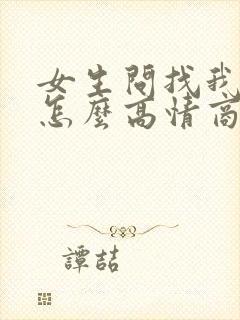 女生問找我
怎麼高情商
譚喆